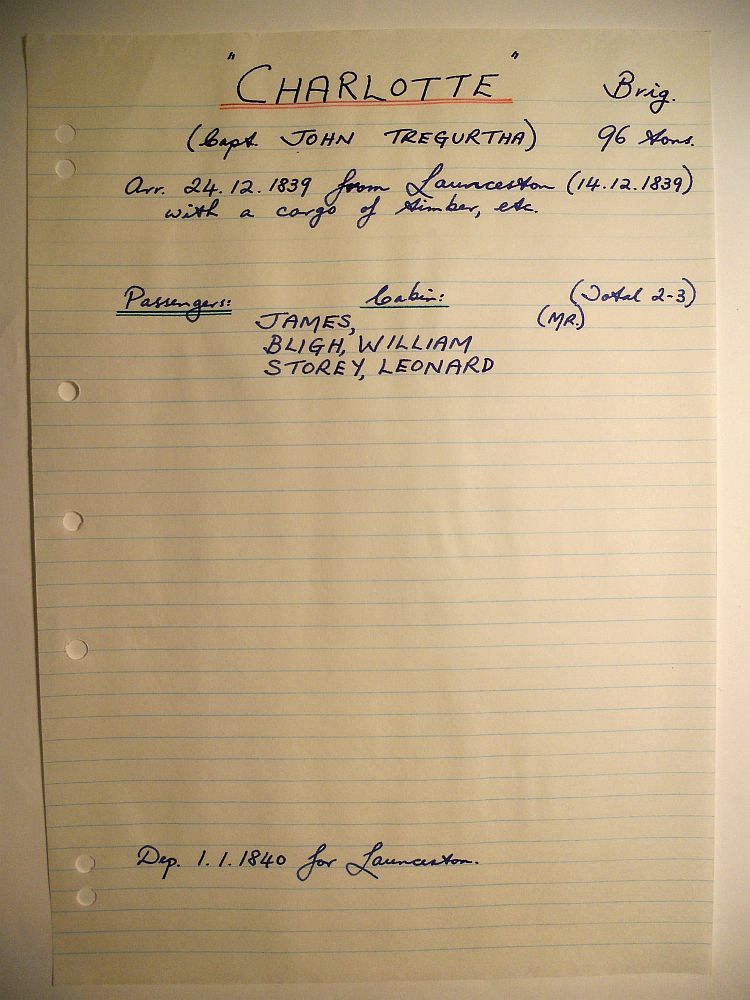 "CHARLOTTE" Brig.
(Capt. JOHN TREGURTHA) 96 tons.
Arr. 24.12.1839 from Launceston (14.12.1839)
with a cargo of timber, etc.
Passengers: Cabin: (Total 2-3)
JAMES, (MR.)
BLIGH, WILLIAM
STOREY, LEONARD
Dep. 1.1.1840 for Launceston.